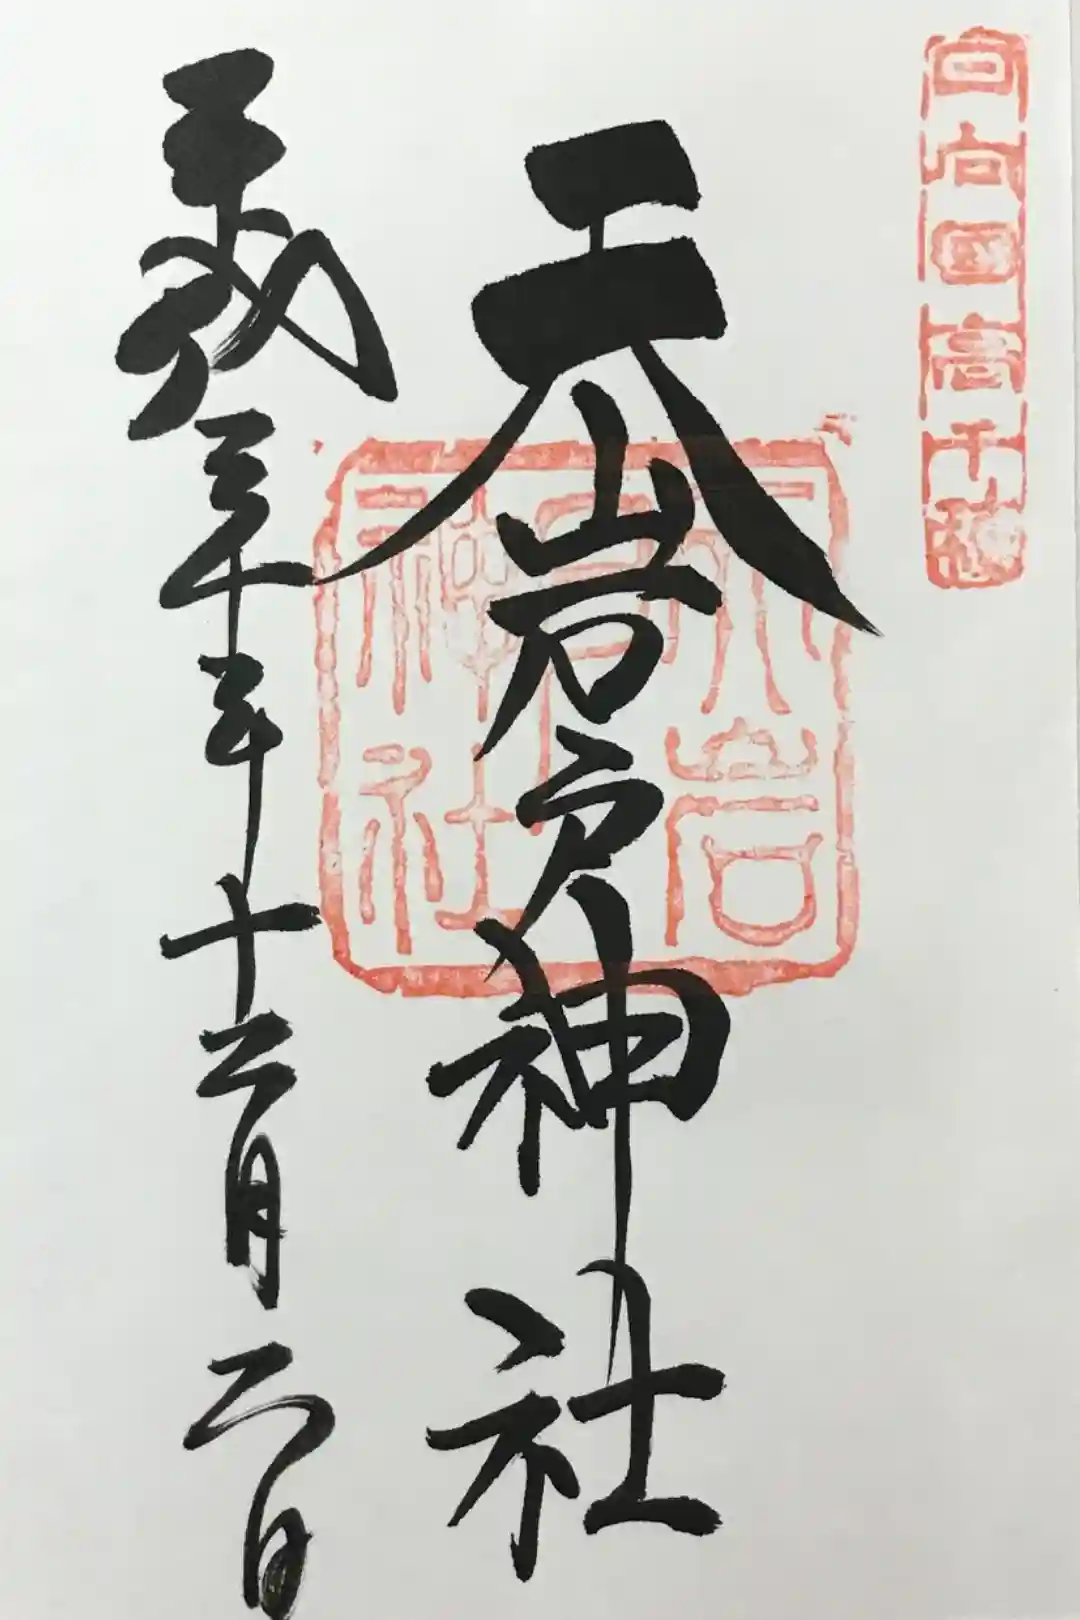 日向國高千穂
天岩戸神社
天岩戸神社
平成三十年十二月二日